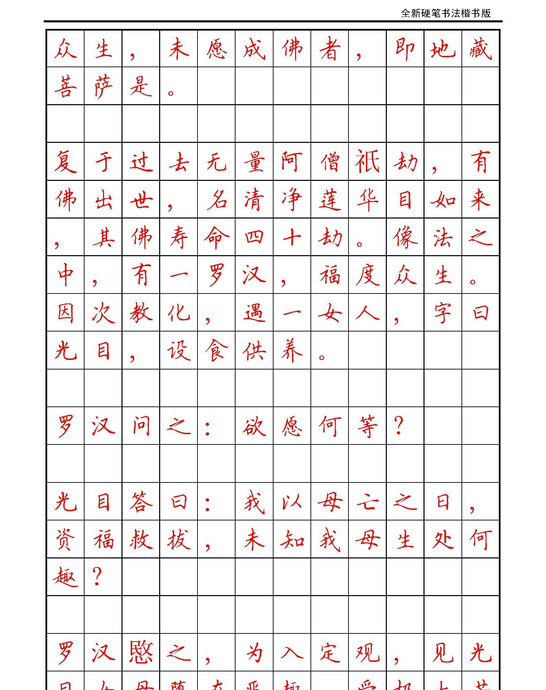 全新硬笔书法楷书版
众生，未愿成佛者，即地藏
菩萨是。
复于过去无量阿僧祇劫，有
佛出世，名清净莲华目如来
，其佛寿命四十劫。像法之
中，有一罗汉，福度众生。
因次教化，遇一女人，字曰
光目，设食供养。
罗汉问之：欲愿何等？
光目答曰：我以母亡之日，
资福救拔，未知我母生处何
趣？
罗汉愍之，为入定观，见光